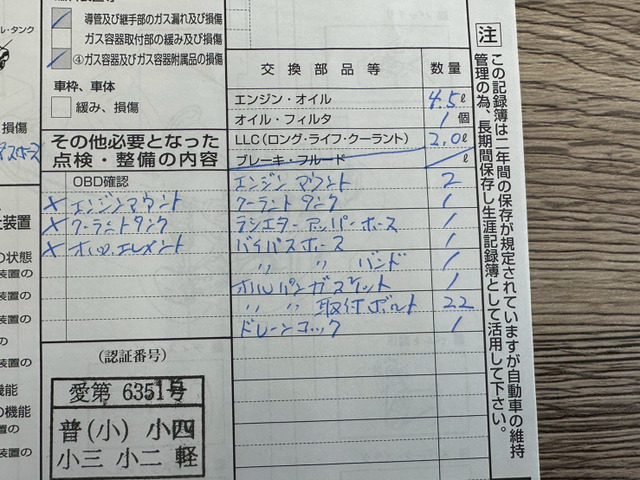 ル・タンク
導管及び継手部のガス漏れ及び損傷
ガス容器取付部の緩み及び損傷
④ガス容器及びガス容器附属品の損傷
車枠、車体
緩み、損傷
損傷
その他必要となった
点検・整備の内容
OBD確認
× エンジンマウント
× クーラントタンク
× オイルエレメント
交換部品等 数量
エンジン・オイル 4.5ℓ
オイル・フィルタ 1個
LLC(ロング・ライフ・クーラント) 2.0ℓ
ブレーキ・フルード ℓ
エンジンマウント 2
クーラントタンク 1
ラジエターアッパーホース 1
バイパスホース 1
〃 〃 バンド 1
オイルパンガスケット 1
〃 〃 取付ボルト 22
ドレーンコック 1
(認証番号)
愛第 6351号
普(小) 小四
小三 小二 軽
注
この記録簿は二年間の保存が規定されていますが自動車の維持
管理の為、長期間保存し生涯記録簿として活用して下さい。
装置
の状態
装置の
装置の
装置の
装置の
機能
の機能
装置の
装置の